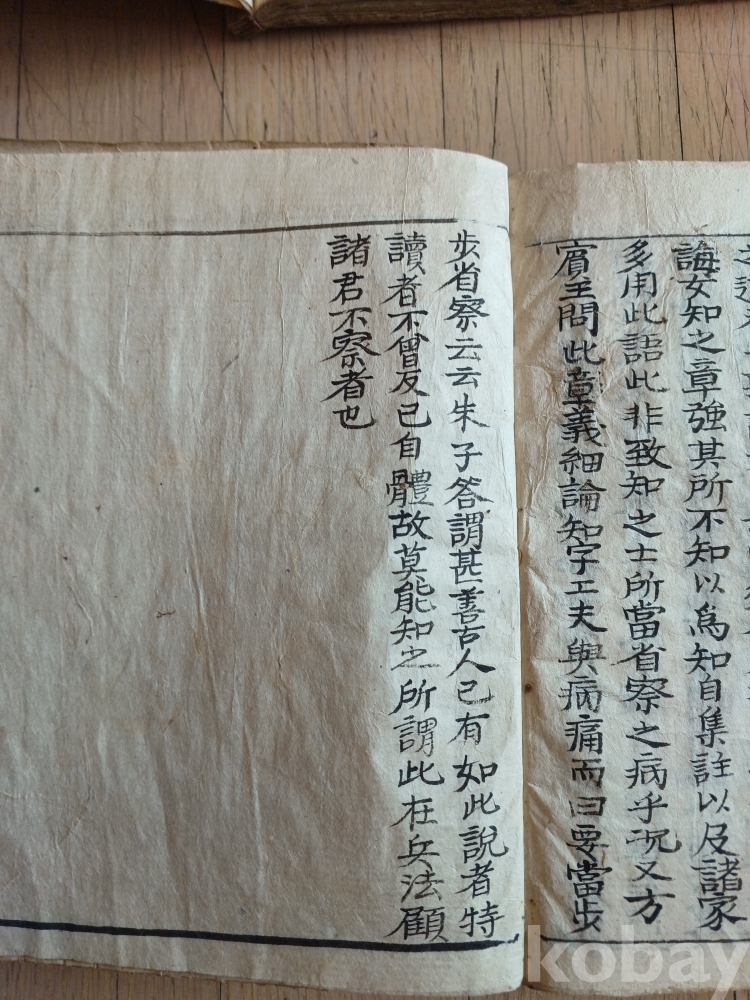 誨女知之章強其所不知以爲知自集註以及諸家
多用此語此非致知之士所當省察之病乎况又方
賔主問此章義細論知字工夫與病痛而曰要當步
步省察云云朱子答謂甚善古人已有如此說者特
讀者不曾反己自體故莫能知之所謂此在兵法顧
諸君不察者也
kobay